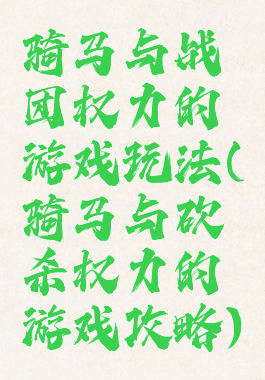 骑马与战
团权力的
游戏玩法(
骑马与砍
杀权力的
游戏攻略)